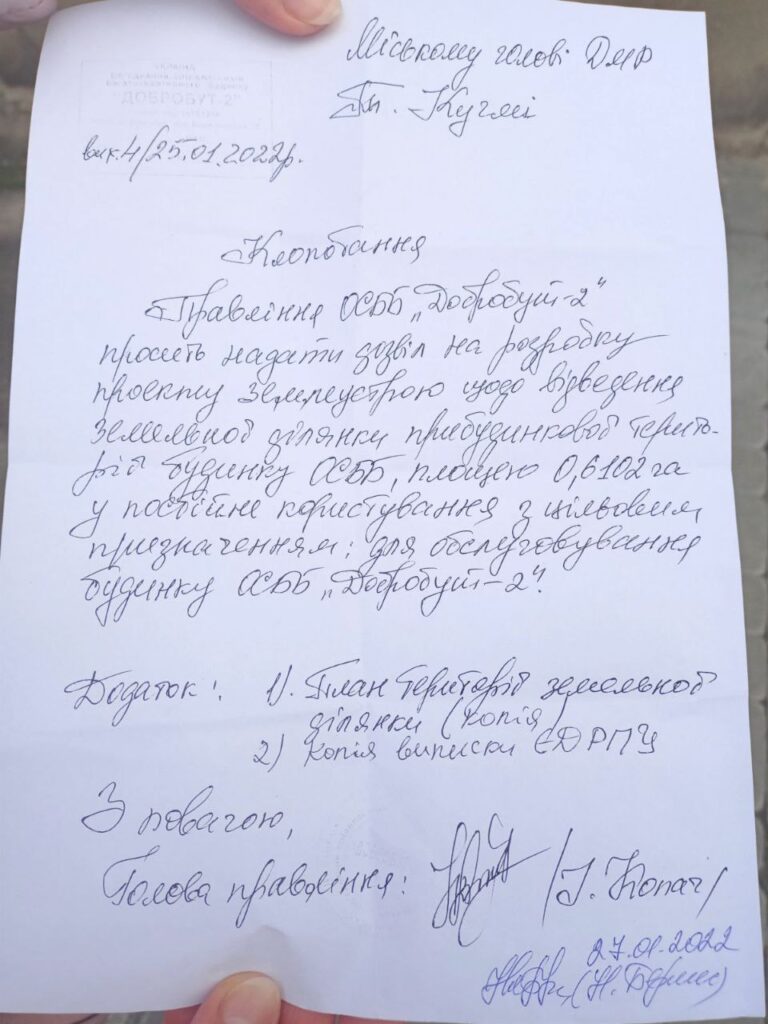 Міському голові ДМР
Тп. Кучмі
УКРАЇНА
"ДОБРОБУТ-2"
вих.4/25.01.2022р.
Клопотання
Правління ОСББ „Добробут-2"
просить надати дозвіл на розробку
проекту землеустрою щодо відведення
земельної ділянки прибудинкової терито-
рії будинку ОСББ, площею 0,6102 га
у постійне користування з цільовим
призначенням: для обслуговування
будинку ОСББ „Добробут-2".
Додаток: 1). План території земельної
ділянки (копія)
2) Копія виписки ЄДРПУ
З повагою,
Голова правління: /І. Копач/
27.01.2022